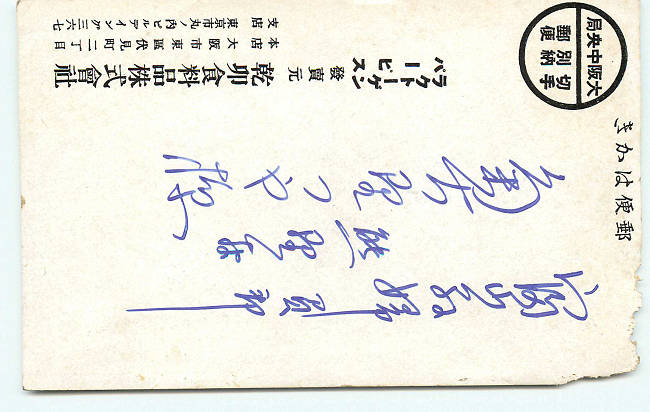 郵便はかき
大阪中央局
切手別納郵便
富山縣婦負郡
熊野村
様
ラクトーゲン
發賣元
乾卯食料品株式會社
本店 大阪市東區伏見町二丁目
支店 東京市丸ノ内ビルデイング三六七